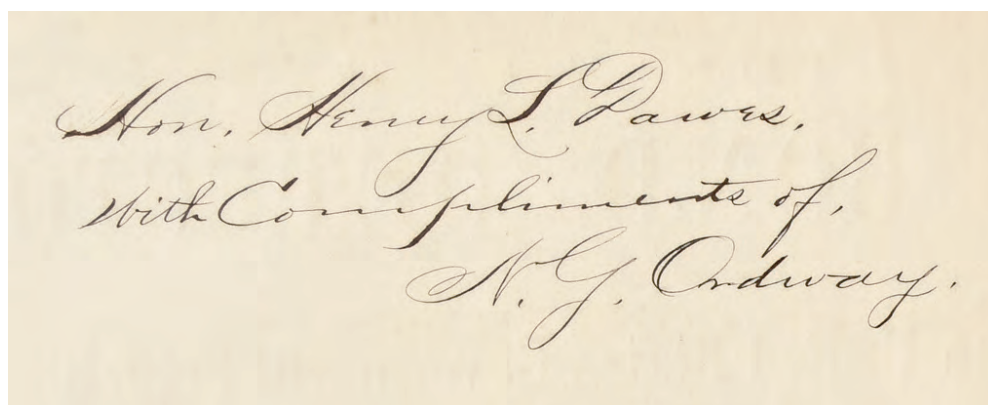 Hon. Henry L. Dawes.
With Compliments of,
N. G. Ordway.